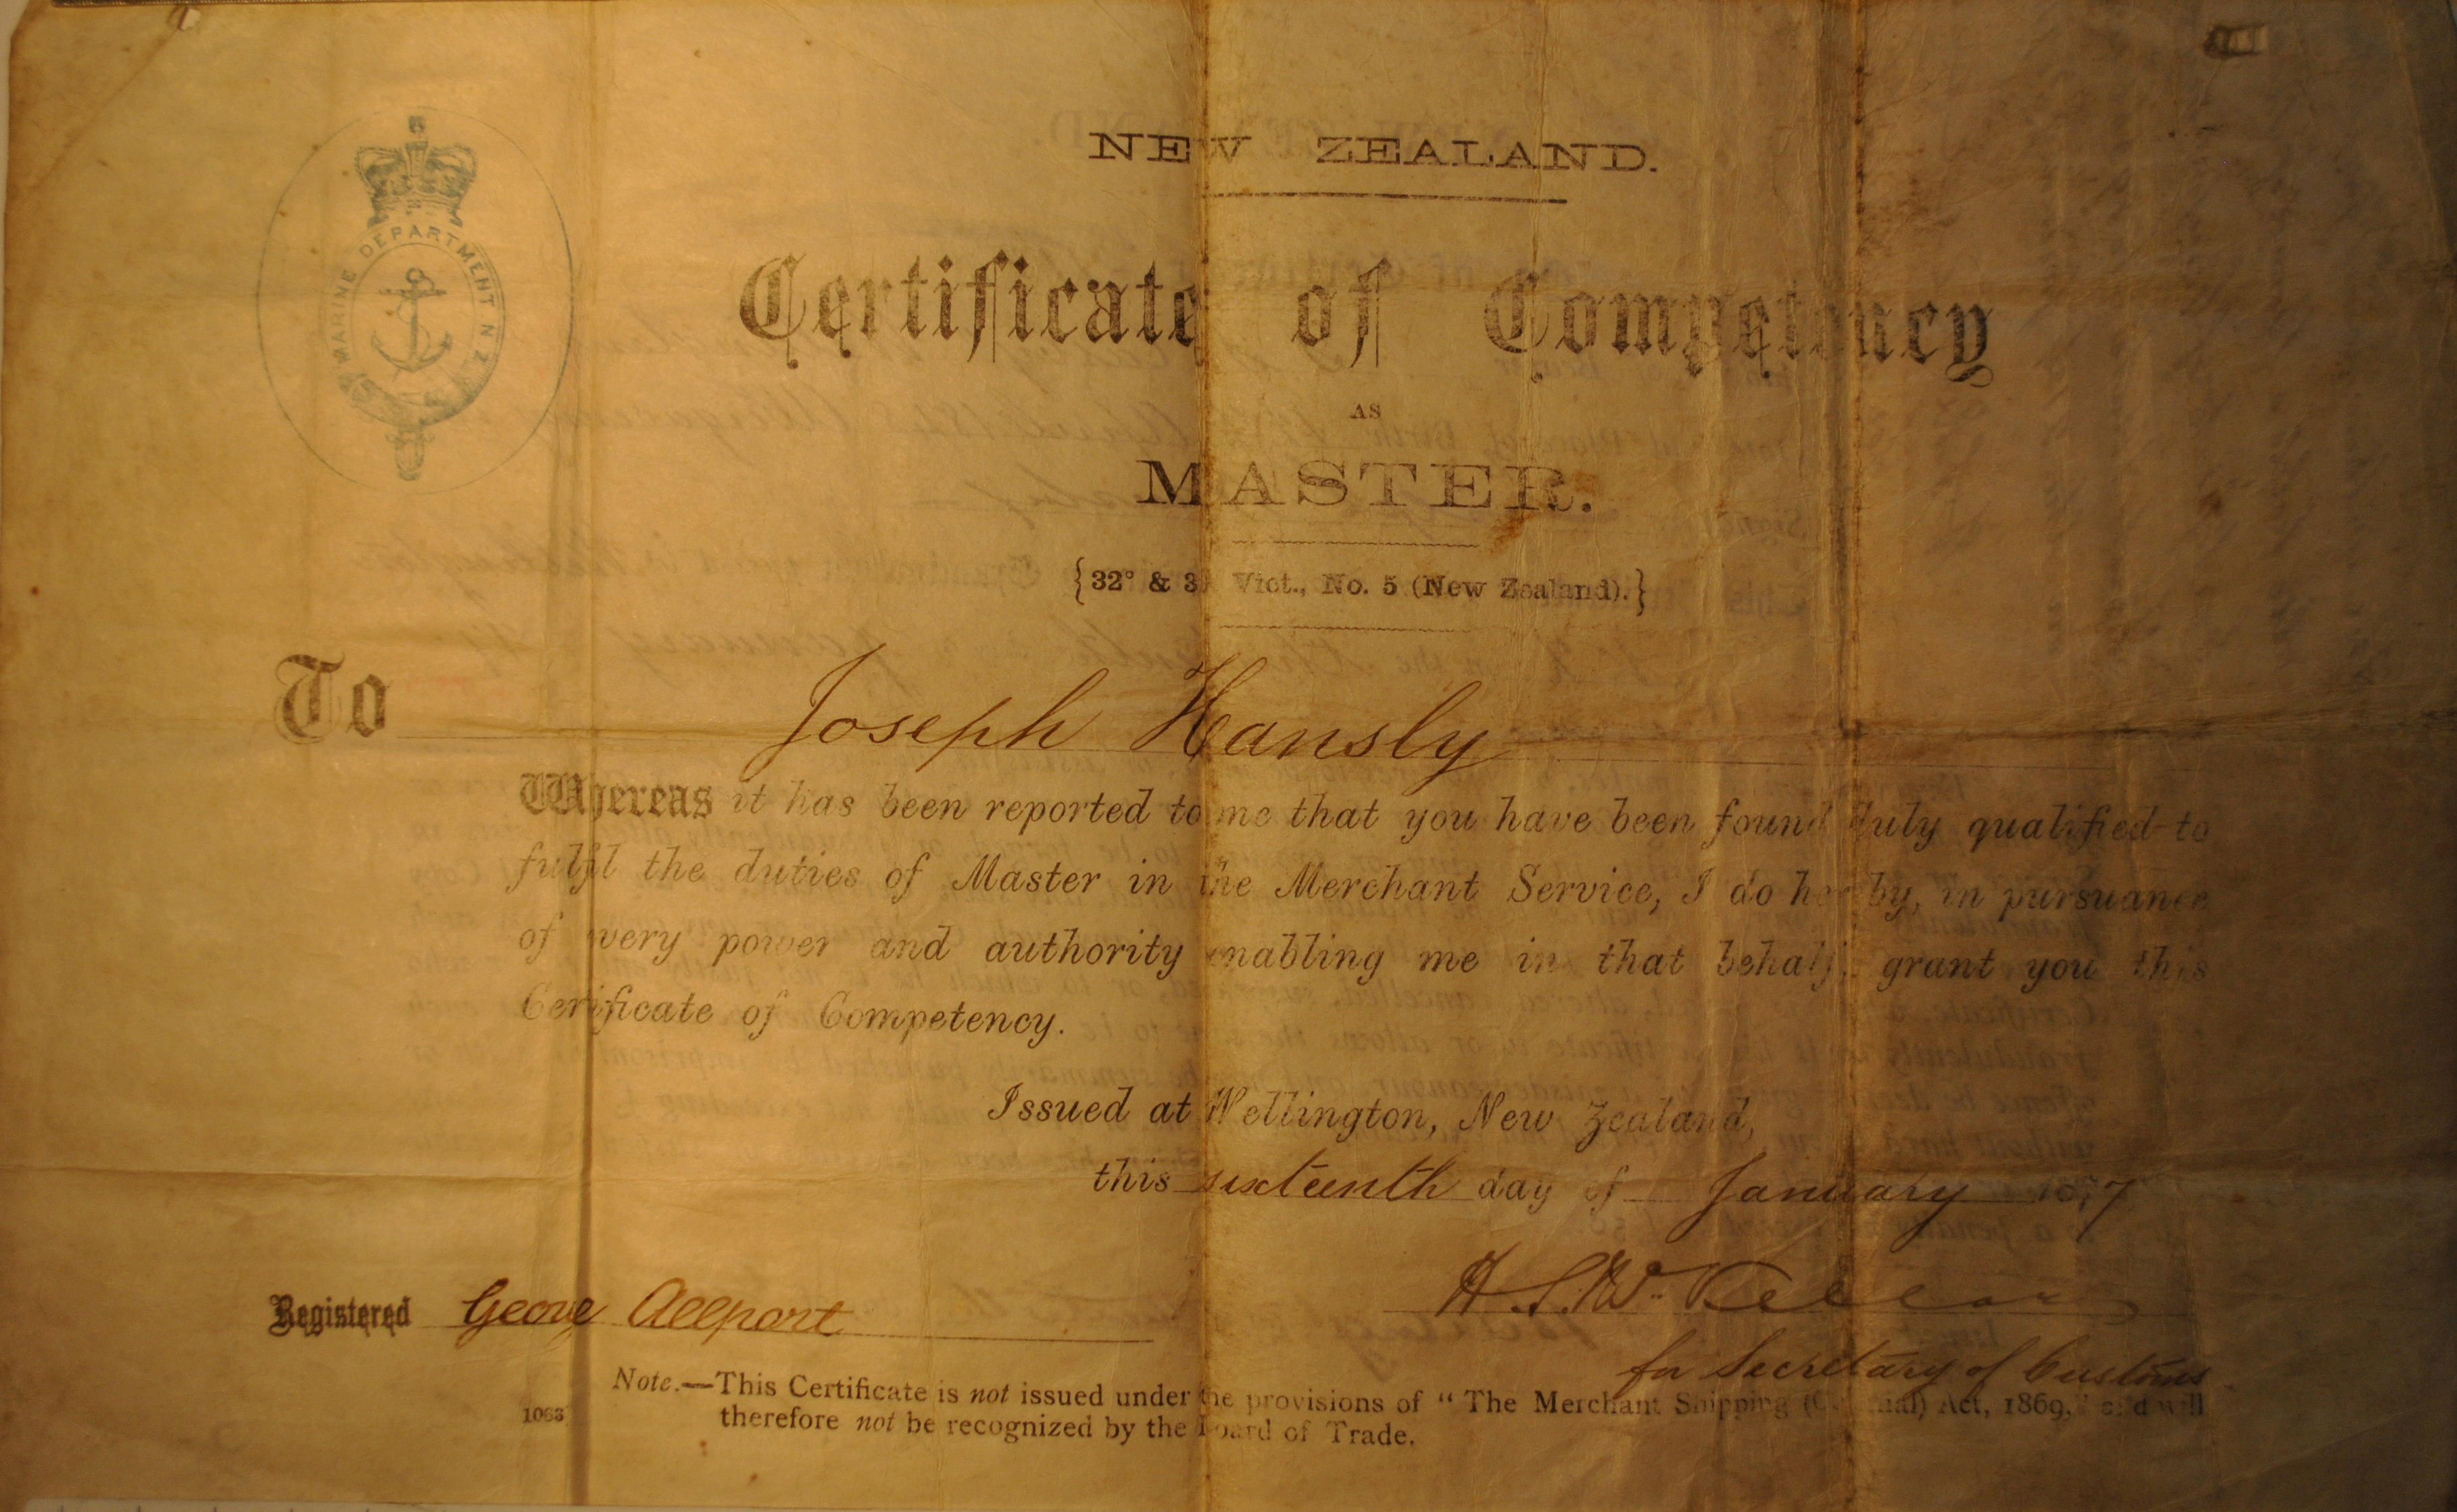 MARINE DEPARTMENT N Z
NEW ZEALAND.
Certificate of Competency
AS
MASTER.
{32° & 33 Vict., No. 5 (New Zealand).}
To Joseph Hansly
Whereas it has been reported to me that you have been found duly qualified to
fulfil the duties of Master in the Merchant Service, I do hereby, in pursuance
of every power and authority enabling me in that behalf, grant you this
Cerificate of Competency.
Issued at Wellington, New Zealand,
this sixteenth day of January
H. S. W.
for Secretary of Customs
Registered George Allport
Note.—This Certificate is not issued under the provisions of "The Merchant Shipping (Colonial) Act, 1869," and will
1063 therefore not be recognized by the Board of Trade.